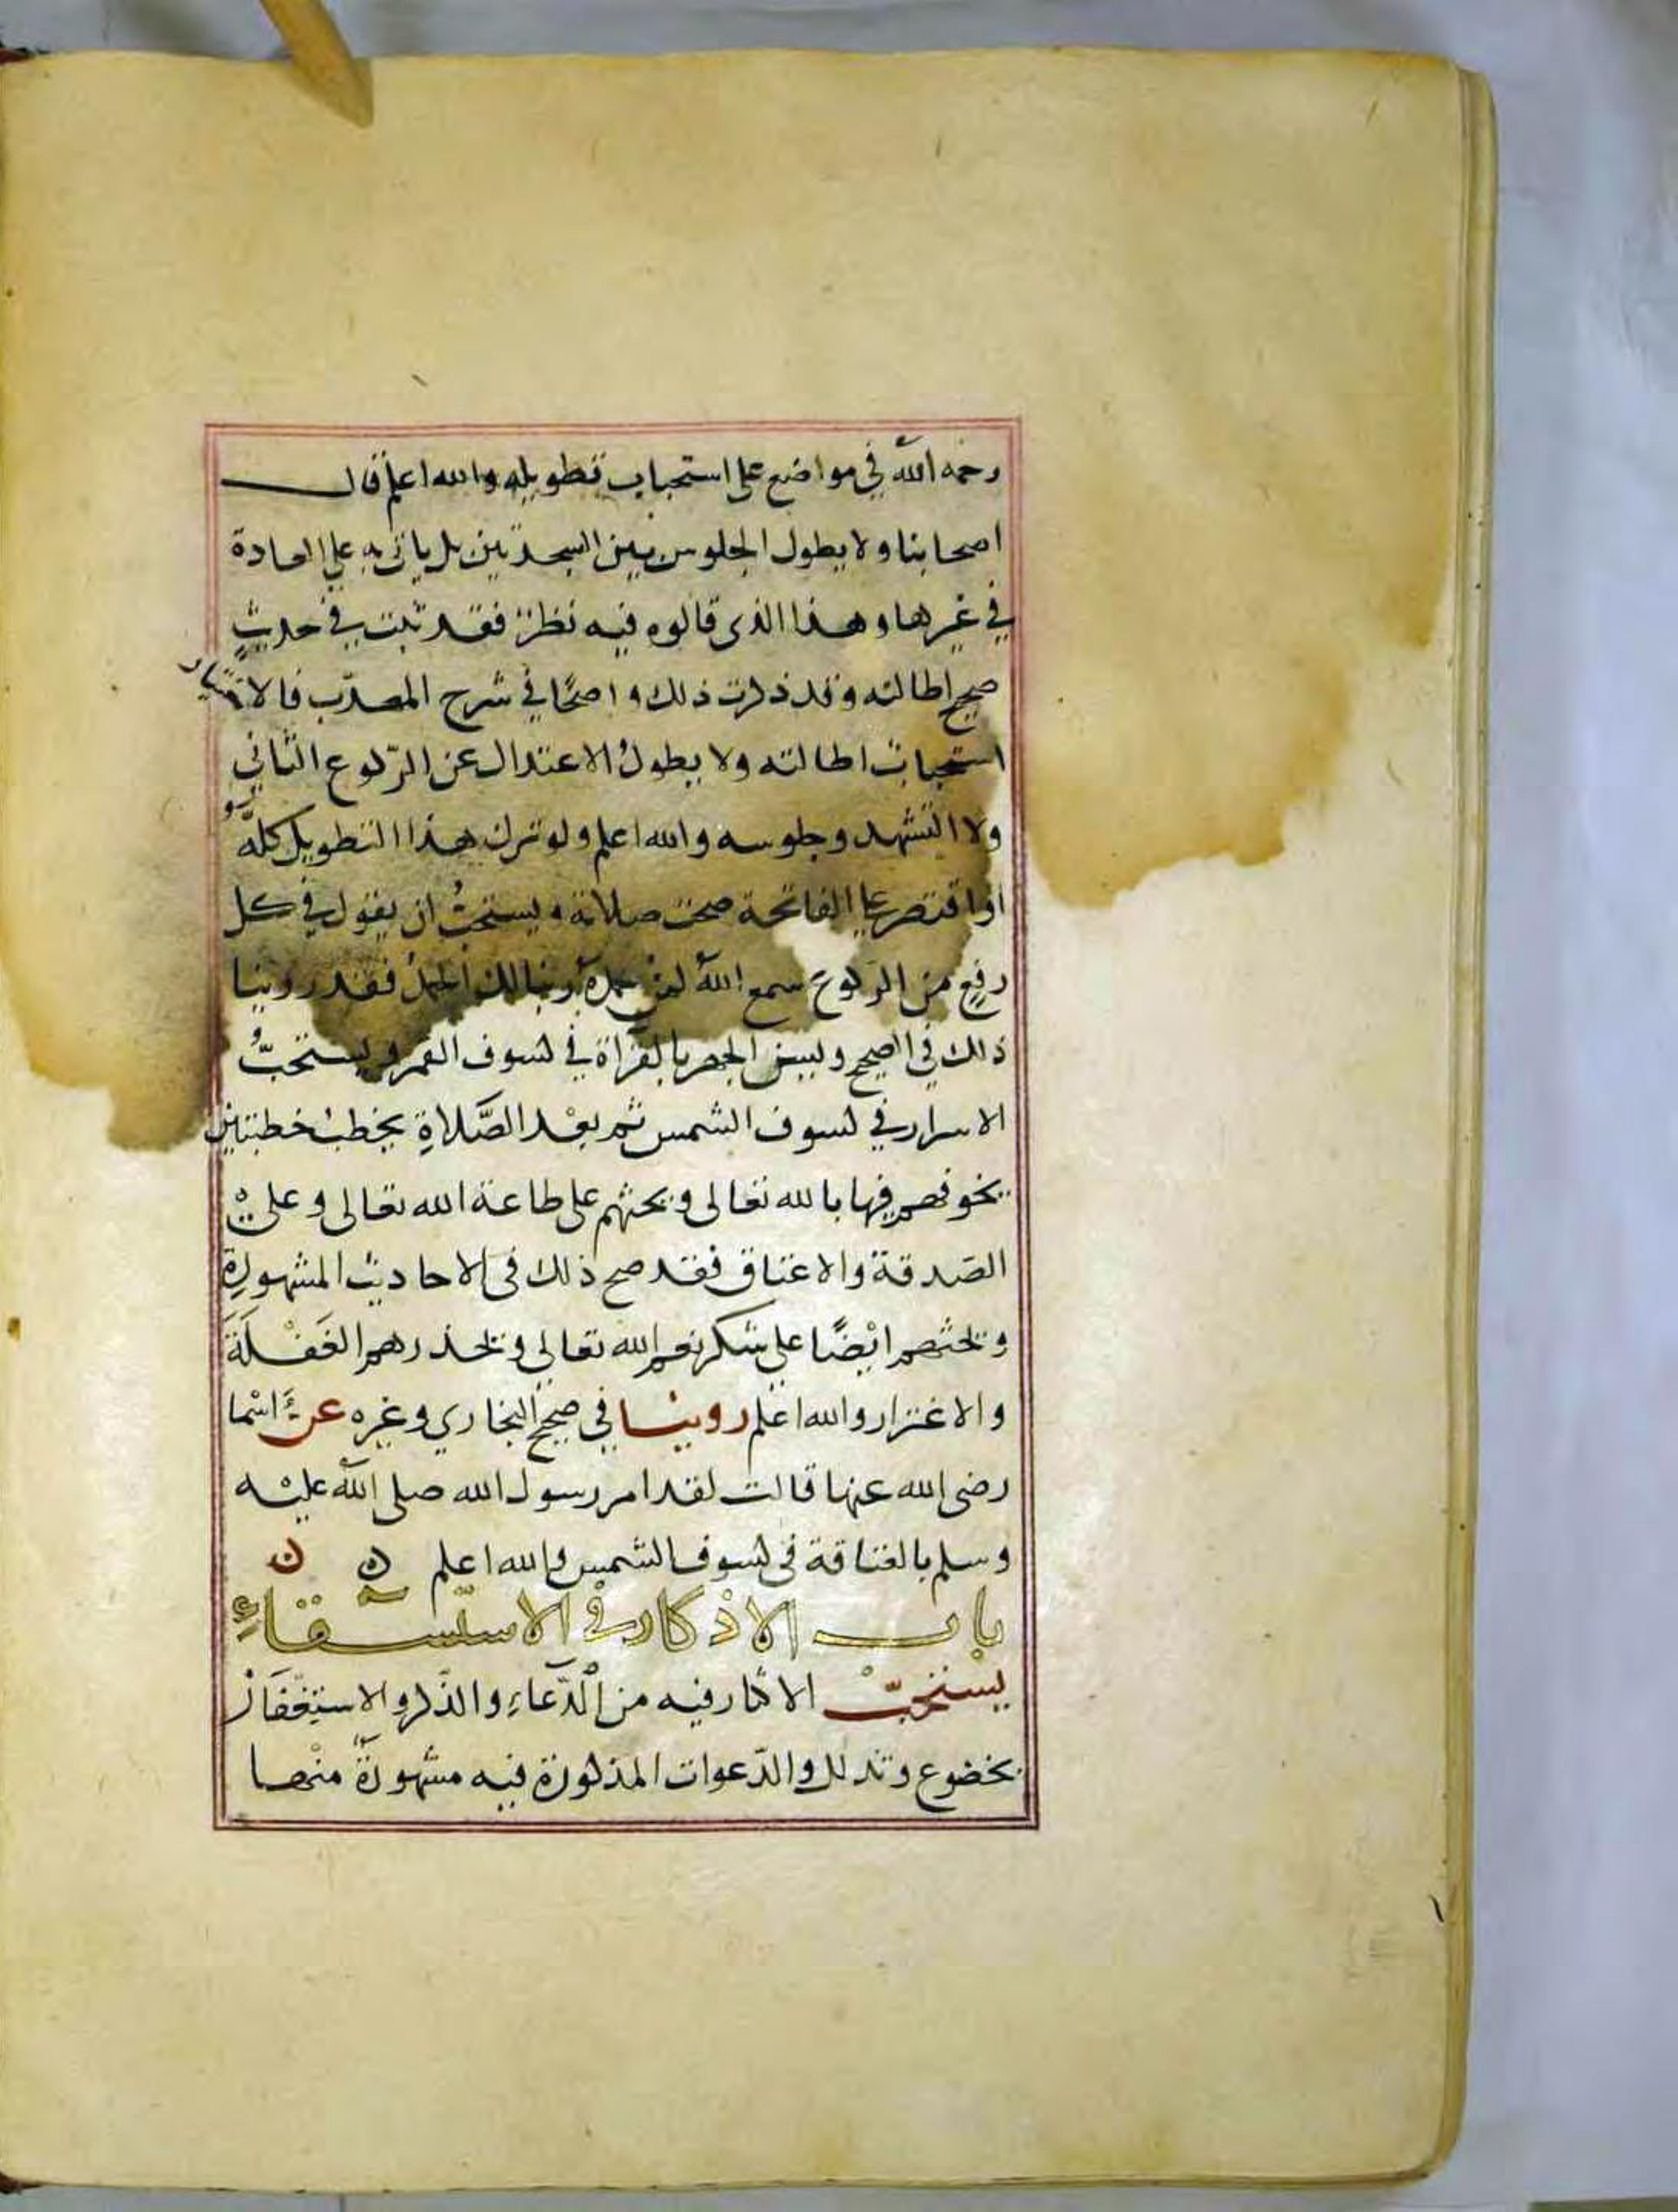 رحمه الله في مواضع على استحباب تطويله والله اعلم قال
اصحابنا ولا يطول الجلوس بين السجدتين بل ياتي به علي العادة
في غيرها وهذا الذي قالوه فيه نظر فقد ثبت في حديثٍ
صحيح اطالته وقد ذكرت ذلك واضحًا في شرح المهذّب فالاختيار
استحباب اطالته ولا يطولُ الاعتدال عن الرّكوع الثاني
ولا التشهد وجلوسه والله اعلم ولو ترك هذا التطويل كلَّهُ
واقتصر علي الفاتحة صحت صلاته ويستحبُّ ان يقول في كل
رفعٍ من الركوع سمع اللهُ لمن حمدهُ ربنا لك الحمدُ فقد روينا
ذلك في الصحيح ويسن الجهر بالقرآة في كسوف القمر ويستحبُّ
الاسرار في كسوف الشمس ثم بعْد الصَّلاةِ يخطبُ خطبتين
يخوفهم فيها بالله تعالى ويحثهم على طاعة الله تعالى وعلى
الصَدقة والاعتاق فقد صح ذلك في الاحاديث المشهورة
ويحثهم ايْضًا علي شكر نعم الله تعالي ويحذرهم الغَفْلَةَ
والاغترار والله اعْلم روينا في صحيح البخاري وغيره عن اسْما
رضي الله عنها قالت لقد امر رسول الله صلى اللّه عليْه
وسلم بالعتاقة في كسوف الشمس والله اعلم ن ن
باب الاذكار في الاستسقاءِ
يسْتحبّ الاكثار فيه من الدّعاءِ والذّكر والاستِغْفَار
بخضوع وتذلل والدّعوات المذكورة فيه مشهورةٌ منْها